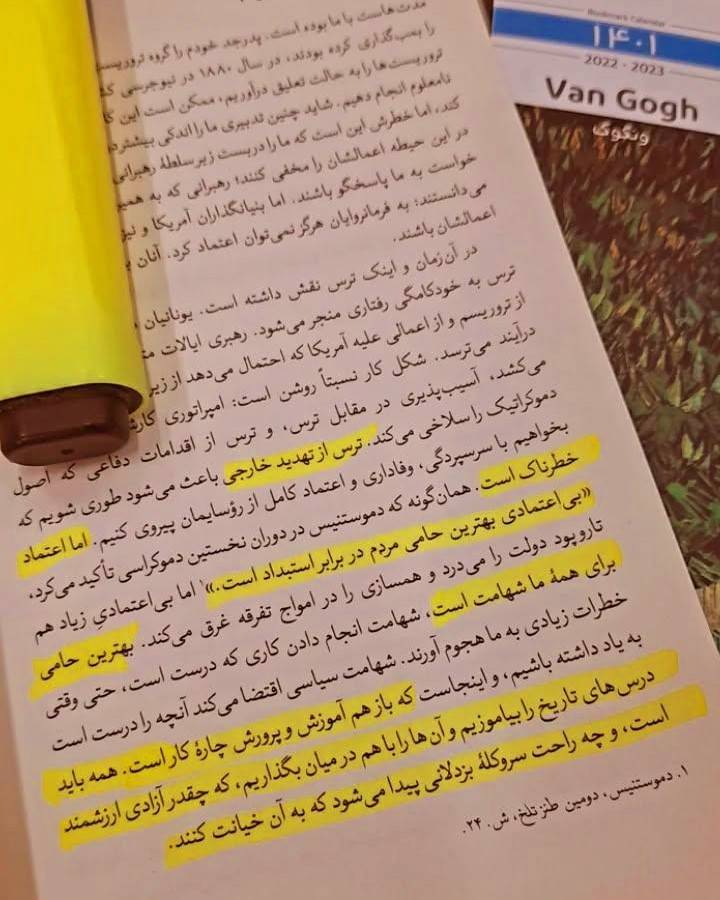 مدت‌هاست با ما بوده است. پدرجد خودم را گروه تروریستی
را بمب‌گذاری کرده بودند، در سال ۱۸۸۰ در نیوجرسی
تروریست‌ها را به حالت تعلیق درآوریم، ممکن است این
نامعلوم انجام دهیم. شاید چنین تدبیری ما را اندکی بیشتر
کند، اما خطرش این است که ما را دربست زیر سلطهٔ رهبرانی
در این حیطه اعمالشان را مخفی کنند؛ رهبرانی که به همین
خواست به ما پاسخگو باشند. اما بنیانگذاران آمریکا و نیز
می‌دانستند؛ به فرمانروایان هرگز نمی‌توان اعتماد کرد. آنان
اعمالشان باشند.
در آن زمان و اینک ترس نقش داشته است. یونانیان
ترس به خودکامگی رفتاری منجر می‌شود. رهبری ایالات
از تروریسم و از اعمالی علیه آمریکا که احتمال می‌دهد از زیر
درآیند می‌ترسد. شکل کار نسبتاً روشن است: امپراتوری
می‌کشد، آسیب‌پذیری در مقابل ترس، و ترس از اقدامات دفاعی که اصول
دموکراتیک را سلاخی می‌کند. ترس از تهدید خارجی باعث می‌شود طوری شویم که
بخواهیم با سرسپردگی، وفاداری و اعتماد کامل از رؤسایمان پیروی کنیم. اما اعتماد
خطرناک است. همان‌گونه که دموستنیس در دوران نخستین دموکراسی تأکید می‌کرد،
«بی‌اعتمادی بهترین حامی مردم در برابر استبداد است.»۱ اما بی‌اعتمادیِ زیاد هم
تاروپود دولت را می‌درد و همسازی را در امواج تفرقه غرق می‌کند. بهترین حامی
برای همهٔ ما شهامت است، شهامت انجام دادن کاری که درست است، حتی وقتی
خطرات زیادی به ما هجوم آورند. شهامت سیاسی اقتضا می‌کند آنچه را درست است
به یاد داشته باشیم، و اینجاست که باز هم آموزش و پرورش چارهٔ کار است. همه باید
درس‌های تاریخ را بیاموزیم و آن‌ها را با هم در میان بگذاریم، که چقدر آزادی ارزشمند
است، و چه راحت سروکلهٔ بزدلانی پیدا می‌شود که به آن خیانت کنند.
۱. دموستنیس، دومین طنز تلخ، ش. ۲۴.
Bookmark Calendar
۱۴۰۱
2022 - 2023
Van Gogh
ونگوگ